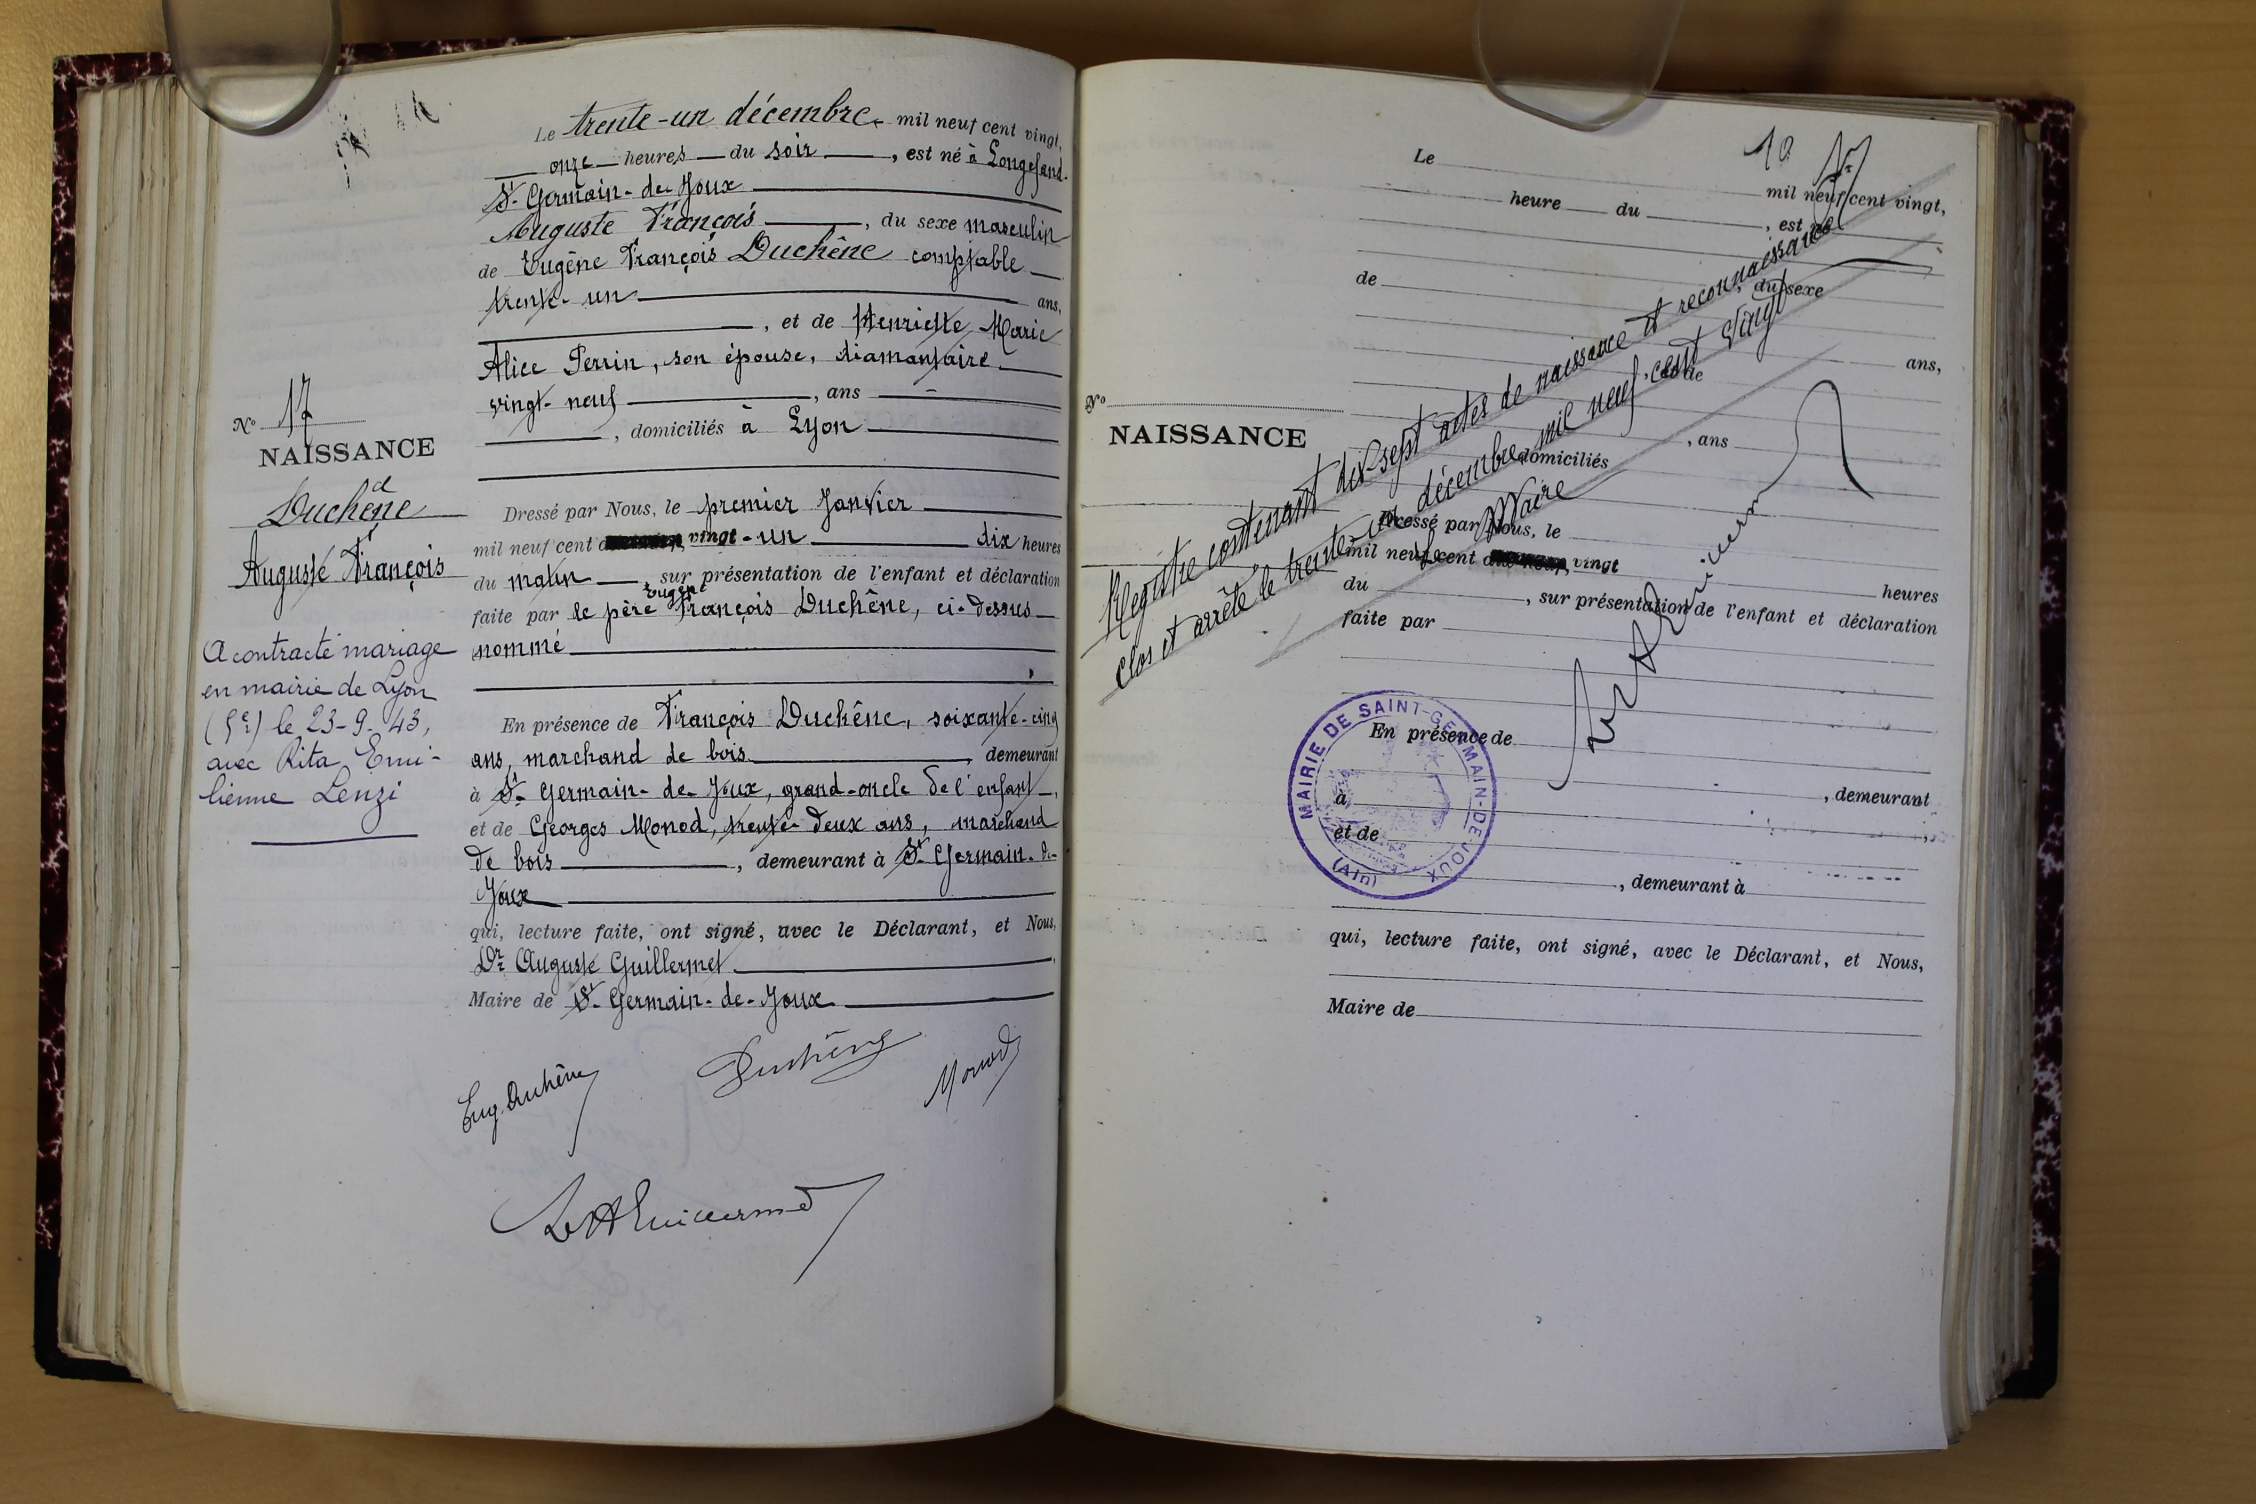 Le trente-un décembre mil neuf cent vingt,
onze heures du soir, est né à Longefand-
St Germain-de-Joux
Auguste François, du sexe masculin
de Eugène François Duchêne comptable
trente-un ans,
, et de Henriette Marie
Alice Perrin, son épouse, diamantaire
vingt-neuf, ans
, domiciliés à Lyon
No 17
NAISSANCE
d
Duchêne
Auguste François
A contracté mariage
en mairie de Lyon
le 23-9-43,
avec Rita Emi-
lienne Lenzi
Dressé par Nous, le premier Janvier
mil neuf cent vingt-un dix heures
du matin, sur présentation de l'enfant et déclaration
Eugène
faite par le père François Duchêne, ci-dessus
nommé
En présence de François Duchêne, soixante-cinq
ans, marchand de bois demeurant
à St Germain-de-Joux, grand-oncle de l'enfant,
et de Georges Monod, trente-deux ans, marchand
de bois, demeurant à St Germain-de-
Joux
qui, lecture faite, ont signé, avec le Déclarant, et Nous,
Dr Auguste Guillermet
Maire de St Germain-de-Joux
Eug. Duchêne
Duchêne
Monod
Dr A Guillermet
10
Le
mil neuf cent vingt,
heure du, est né
de, du sexe
ans,
, et de
No
NAISSANCE
, ans
domiciliés
Registre contenant dix-sept actes de naissance et reconnaissance
clos et arrêté le trente-un décembre mil neuf cent vingt
Le Maire
Dr A Guillermet
Dressé par Nous, le
mil neuf cent vingt
heures
du, sur présentation de l'enfant et déclaration
faite par
MAIRIE DE SAINT-GERMAIN-DE-JOUX
(Ain)
En présence de
à, demeurant
et de
, demeurant à
qui, lecture faite, ont signé, avec le Déclarant, et Nous,
Maire de